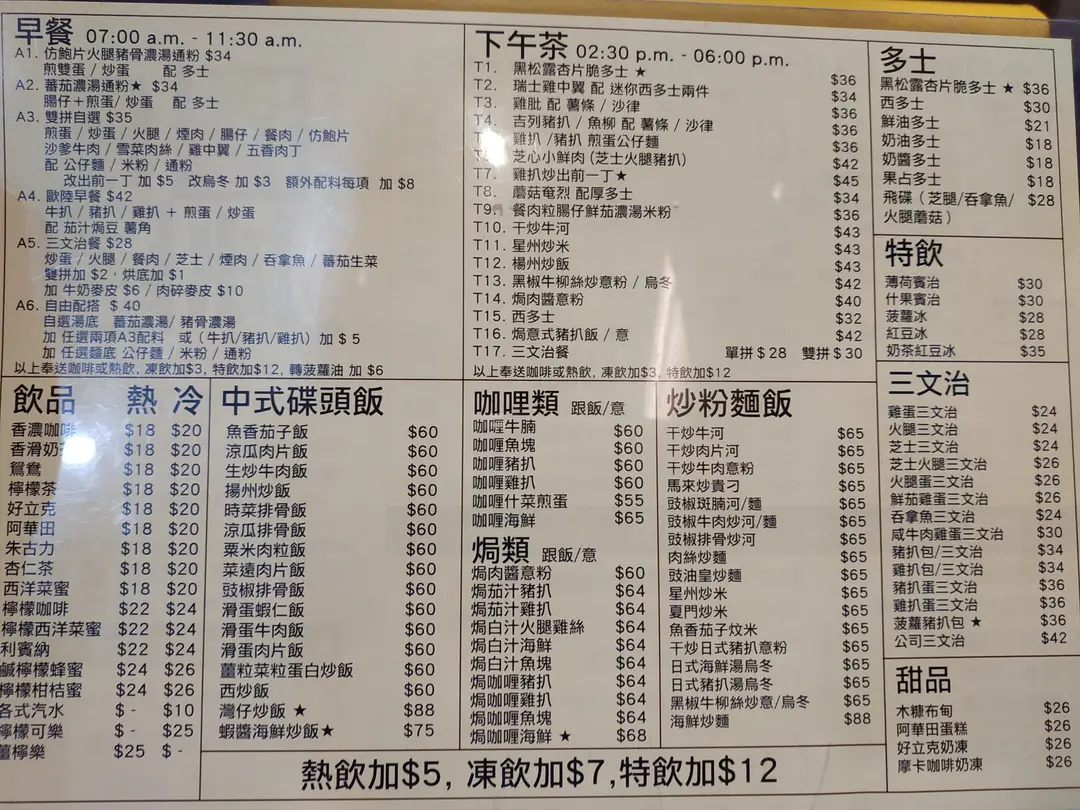 早餐 07:00 a.m. - 11:30 a.m.
A1. 仿鮑片火腿豬骨濃湯通粉 $34
煎雙蛋 / 炒蛋 配 多士
A2. 蕃茄濃湯通粉★ $34
腸仔＋煎蛋/ 炒蛋 配 多士
A3. 雙拼自選 $35
煎蛋 / 炒蛋 / 火腿 / 煙肉 / 腸仔 / 餐肉 / 仿鮑片
沙爹牛肉 / 雪菜肉絲 / 雞中翼 / 五香肉丁
配 公仔麵 / 米粉 / 通粉
改出前一丁 加 $5 改烏冬 加 $3 額外配料每項 加 $8
A4. 歐陸早餐 $42
牛扒 / 豬扒 / 雞扒 + 煎蛋 / 炒蛋
配 茄汁焗豆 薯角
A5. 三文治餐 $28
炒蛋 / 火腿 / 餐肉 / 芝士 / 煙肉 / 吞拿魚 / 蕃茄生菜
雙拼加 $2，烘底加 $1
加 牛奶麥皮 $6 / 肉碎麥皮 $10
A6. 自由配搭 $ 40
自選湯底 蕃茄濃湯/ 豬骨濃湯
加 任選兩項A3配料 或（牛扒/豬扒/雞扒）加 $ 5
加 任選麵底 公仔麵 / 米粉 / 通粉
以上奉送咖啡或熱飲, 凍飲加$3, 特飲加$12, 轉菠蘿油 加 $6
下午茶 02:30 p.m. - 06:00 p.m.
T1. 黑松露杏片脆多士 ★ $36
T2. 瑞士雞中翼 配 迷你西多士兩件 $34
T3. 雞肶 配 薯條 / 沙律 $36
T4. 吉列豬扒 / 魚柳 配 薯條 / 沙律 $36
雞扒 /豬扒 煎蛋公仔麵 $36
芝心小鮮肉 (芝士火腿豬扒) $42
T7. 雞扒炒出前一丁★ $45
T8. 蘑菇奄烈 配厚多士 $34
T9. 餐肉粒腸仔鮮茄濃湯米粉 $36
T10. 干炒牛河 $43
T11. 星州炒米 $43
T12. 楊州炒飯 $43
T13. 黑椒牛柳絲炒意粉 / 烏冬 $42
T14. 焗肉醬意粉 $40
T15. 西多士 $32
T16. 焗意式豬扒飯 / 意 $42
T17. 三文治餐 單拼 $28 雙拼 $30
以上奉送咖啡或熱飲, 凍飲加$3, 特飲加$12
多士
黑松露杏片脆多士 ★ $36
西多士 $30
鮮油多士 $21
奶油多士 $18
奶醬多士 $18
果占多士 $18
飛碟（芝腿/吞拿魚/ $28
火腿蘑菇）
特飲
薄荷賓治 $30
什果賓治 $30
菠蘿冰 $28
紅豆冰 $28
奶茶紅豆冰 $35
三文治
雞蛋三文治 $24
火腿三文治 $24
芝士三文治 $24
芝士火腿三文治 $26
火腿蛋三文治 $26
鮮茄雞蛋三文治 $26
吞拿魚三文治 $24
咸牛肉雞蛋三文治 $30
豬扒包/三文治 $34
雞扒包/三文治 $34
豬扒蛋三文治 $36
雞扒蛋三文治 $36
菠蘿豬扒包 ★ $36
公司三文治 $42
甜品
木糠布甸 $26
阿華田蛋糕 $26
好立克奶凍 $26
摩卡咖啡奶凍 $26
飲品 熱 冷
香濃咖啡 $18 $20
香滑奶 $18 $20
鴛鴦 $18 $20
檸檬茶 $18 $20
好立克 $18 $20
阿華田 $18 $20
朱古力 $18 $20
杏仁茶 $18 $20
西洋菜蜜 $18 $20
檸檬咖啡 $22 $24
檸檬西洋菜蜜 $22 $24
利賓納 $22 $24
鹹檸檬蜂蜜 $24 $26
檸檬柑桔蜜 $24 $26
各式汽水 $ - $10
檸檬可樂 $ - $25
薑檸樂 $25 $ -
中式碟頭飯
魚香茄子飯 $60
涼瓜肉片飯 $60
生炒牛肉飯 $60
揚州炒飯 $60
時菜排骨飯 $60
涼瓜排骨飯 $60
粟米肉粒飯 $60
菜遠肉片飯 $60
豉椒排骨飯 $60
滑蛋蝦仁飯 $60
滑蛋牛肉飯 $60
滑蛋肉片飯 $60
薑粒菜粒蛋白炒飯 $60
西炒飯 $60
灣仔炒飯 ★ $88
蝦醬海鮮炒飯★ $75
咖哩類 跟飯/意
咖喱牛腩 $60
咖喱魚塊 $60
咖喱豬扒 $60
咖喱雞扒 $60
咖喱什菜煎蛋 $55
咖喱海鮮 $65
焗類 跟飯/意
焗肉醬意粉 $60
焗茄汁豬扒 $64
焗茄汁雞扒 $64
焗白汁火腿雞絲 $64
焗白汁海鮮 $64
焗白汁魚塊 $64
焗咖喱豬扒 $64
焗咖喱雞扒 $64
焗咖喱魚塊 $64
焗咖喱海鮮 ★ $68
炒粉麵飯
干炒牛河 $65
干炒肉片河 $65
干炒牛肉意粉 $65
馬來炒貴刁 $65
豉椒斑腩河/麵 $65
豉椒牛肉炒河/麵 $65
豉椒排骨炒河 $65
肉絲炒麵 $65
豉油皇炒麵 $65
星州炒米 $65
夏門炒米 $65
魚香茄子炆米 $65
干炒日式豬扒意粉 $65
日式海鮮湯烏冬 $65
日式豬扒湯烏冬 $65
黑椒牛柳絲炒意/烏冬 $65
海鮮炒麵 $88
熱飲加$5, 凍飲加$7,特飲加$12